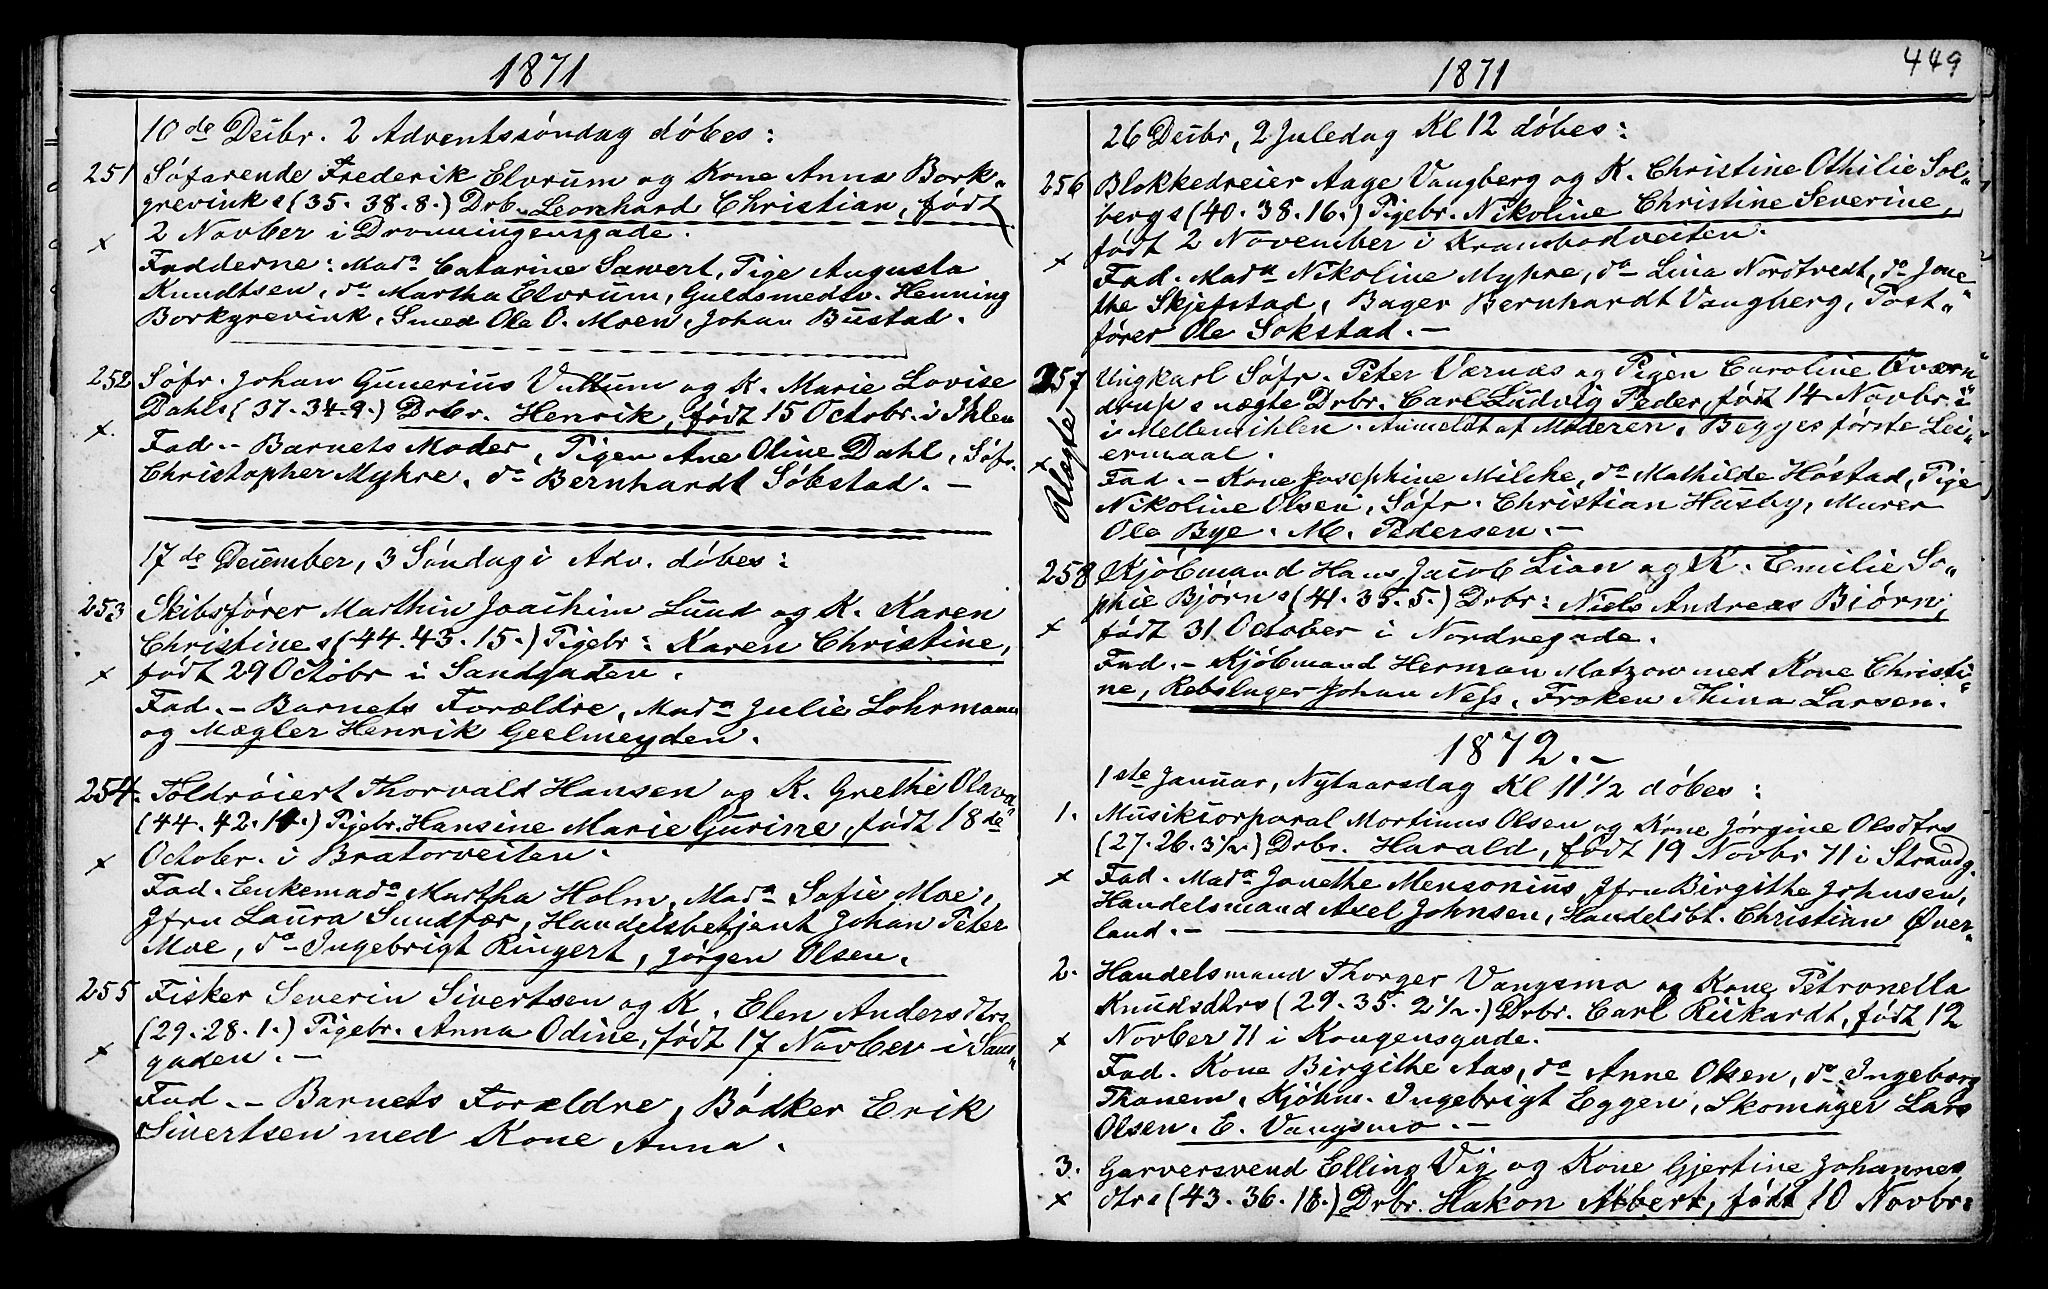 1871
10de Decbr. 2 Adventssöndag döbes:
251 Söfarende Frederik Elvrum og Kone Anna Bork-
grevinks (35. 38. 8.) Drb. Leonhard Christian, født
x 2 Novber i Dronningensgade.
Fadderne: Mada Catarine Sawert, Pige Augusta
Knudtsen, do Martha Elvrum, Guldsmedsv. Henning
Borkgrevink, Smed Ole O. Moen, Johan Bustad.
252 Söfr. Johan Gunerius Vullum og K. Marie Lovise
Dahls (37. 34. 9.) Drbr. Henrik, født 15 Octobr. i Ihlen
x. Fad. - Barnets Moder, Pigen Ane Oline Dahl, Söfr.
Christopher Myhre, do Bernhardt Sökstad. -
17de December, 3 Söndag i Adv. döbes:
253 Skibsfører Marthin Joachim Lund og K. Karen
Christines (44. 43. 15.) Pigebr: Karen Christine,
x født 29 Octobr i Sandgaden.
Fad. - Barnets Forældre, Mada Julie Lohrmann
og Mægler Henrik Geelmeyden.
254. Toldröiert Thorvald Hansen og K. Grethe Olava
(44. 42. 14.) Pigebr. Hansine Marie Gurine, født 18de
x Octobr. i Bratorveiten.
Fad. Enkemada Martha Holm, Mada Sofie Moe,
Jfru Laura Sundfær, Handelsbetjent Johan Peter
Moe, do Ingebrigt Ringert, Jørgen Olsen.
255 Fisker Severin Sivertsen og K. Elen Andersdtrs
(29. 28. 1.) Pigebr. Anna Odine, født 17 Novber i San-
x gaden. -
Fad. - Barnets Forældre, Bödker Erik
Sivertsen med Kone Anna.
449
1871
26 Decbr, 2 Juledag Kl 12 döbes:
256 Blokkedreier Aage Vangberg og K. Christine Othilie Sol-
bergs (40. 38. 16.) Pigebr. Nikoline Christine Severine,
x født 2 November i Krambodveiten.
Fad. Mada Nikoline Myhre, do Lina Nordtvedt, do Jone-
the Skjefstad, Bager Bernhardt Vangberg, Post-
fører Ole Sokstad. -
257 Ungkarl Söfr. Peter Værnæs og Pigen Caroline Overn-
drups uægte Drbr. Carl Ludvig Peder, født 14 Novbr. i
i Mellemihlen. Anmeldt af Moderen. Begges første Lei-
x Uægte ermaal.
Fad. - Kone Josephine Milche, do Mathilde Höstad, Pige
Nikoline Olsen, Söfr. Christian Husby, Murer
Ole Bye. M. Pedersen. -
258 Kjöbmand Hans Jacob Lian og K. Emilie So-
phie Bjørns (41. 35. 5.) Drbr: Niels Andreas Biörn,
x født 31 October i Nordregade.
Fad. - Kjöbmand Herman Matzow med Kone Christi-
ne, Rebslager Johan Ness, Frøken Thina Larsen.
1872. -
1ste Januar, Nytaarsdag Kl 11 1/2 döbes:
1. Musikcorporal Mortinus Olsen og Kone Jörgine Olsdtrs
(27. 26. 3 1/2.) Drbr. Harald, født 19 Novbr 71 i Strandg.
x Fad. Mada Jonethe Mensonius, Jfru Birgithe Johnsen,
Handelsmand Axel Johnsen, Handelsbt. Christian Øver-
land. -
2. Handelsmand Thorger Vangsmo og Kone Petronella
Knudsdtrs (29. 35. 2 1/2.) Drbr. Carl Rickardt, født 12
x Novber 71 i Kongensgade.
Fad. Kone Birgithe Aas, do Anne Olsen, do Ingeborg
Thanem, Kjöbm. Ingebrigt Eggen, Skomager Lars
Olsen. E. Vangsmo. -
3. Garversvend Elling Vig og Kone Gjertine Johannes
x dtrs (43. 36. 18.) Drbr. Hakon Albert, født 10 Novbr: